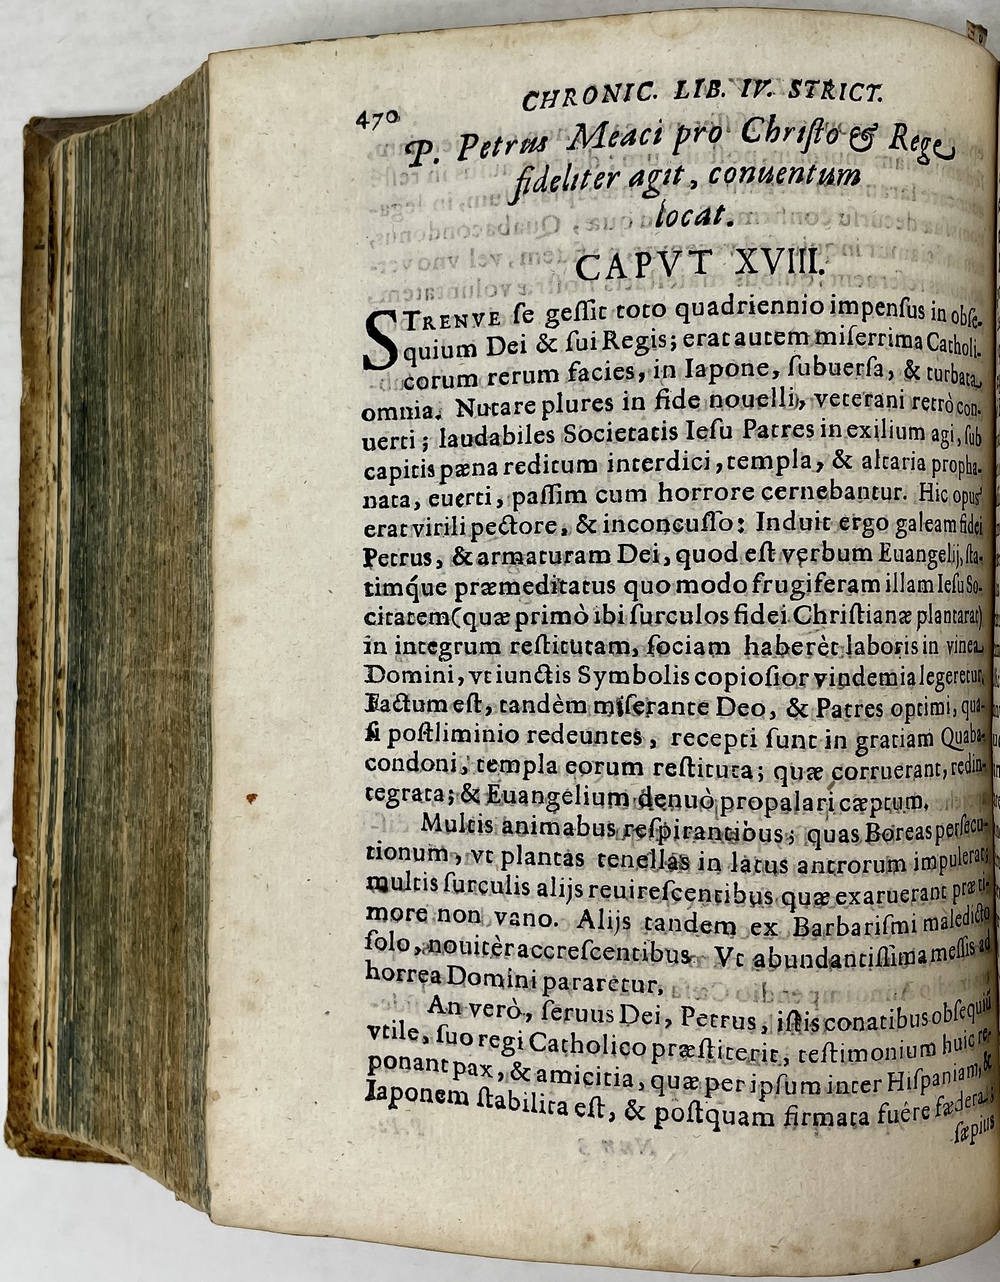 470 CHRONIC. LIB. IV. STRICT.
P. Petrus Meaci pro Chriſto & Rege
fideliter agit, conuentum
locat.
CAPVT XVIII.
STRENVE ſe geſſit toto quadriennio impenſus in obſe-
quium Dei & ſui Regis; erat autem miſerrima Catholi-
corum rerum facies, in Iapone, ſubuerſa, & turbata
omnia. Nutare plures in fide nouelli, veterani retrò con-
uerti; laudabiles Societatis Ieſu Patres in exilium agi, ſub
capitis pæna reditum interdici, templa, & altaria propha-
nata, euerti, paſſim cum horrore cernebantur. Hic opus
erat virili pectore, & inconcuſſo: Induit ergo galeam fidei
Petrus, & armaturam Dei, quod eſt verbum Euangelij, ſta-
timq́ue præmeditatus quo modo frugiferam illam Ieſu So-
citatem (quæ primò ibi ſurculos fidei Chriſtianæ plantarat)
in integrum reſtitutam, ſociam haberèt laboris in vinea
Domini, vt iunctis Symbolis copioſior vindemia legeretur.
Factum eſt, tandèm miſerante Deo, & Patres optimi, qua-
ſi poſtliminio redeuntes, recepti ſunt in gratiam Quaba-
condoni, templa eorum reſtituta; quæ corruerant, redin-
tegrata; & Euangelium denuò propalari cæptum.
Multis animabus reſpirantibus; quas Boreas perſecu-
tionum, vt plantas tenellas in latus antrorum impulerat;
multis ſurculis alijs reuireſcentibus quæ exaruerant præ ti-
more non vano. Alijs tandem ex Barbariſmi maledicto
ſolo, nouitèr accreſcentibus. Vt abundantiſſima meſſis ad
horrea Domini pararetur.
An verò, ſeruus Dei, Petrus, iſtis conatibus obſequiū
vtile, ſuo regi Catholico præſtiterit, teſtimonium huic re-
ponant pax, & amicitia, quæ per ipſum inter Hiſpaniam, &
Iaponem ſtabilita eſt, & poſtquam firmata fuêre fædera;
ſæpius